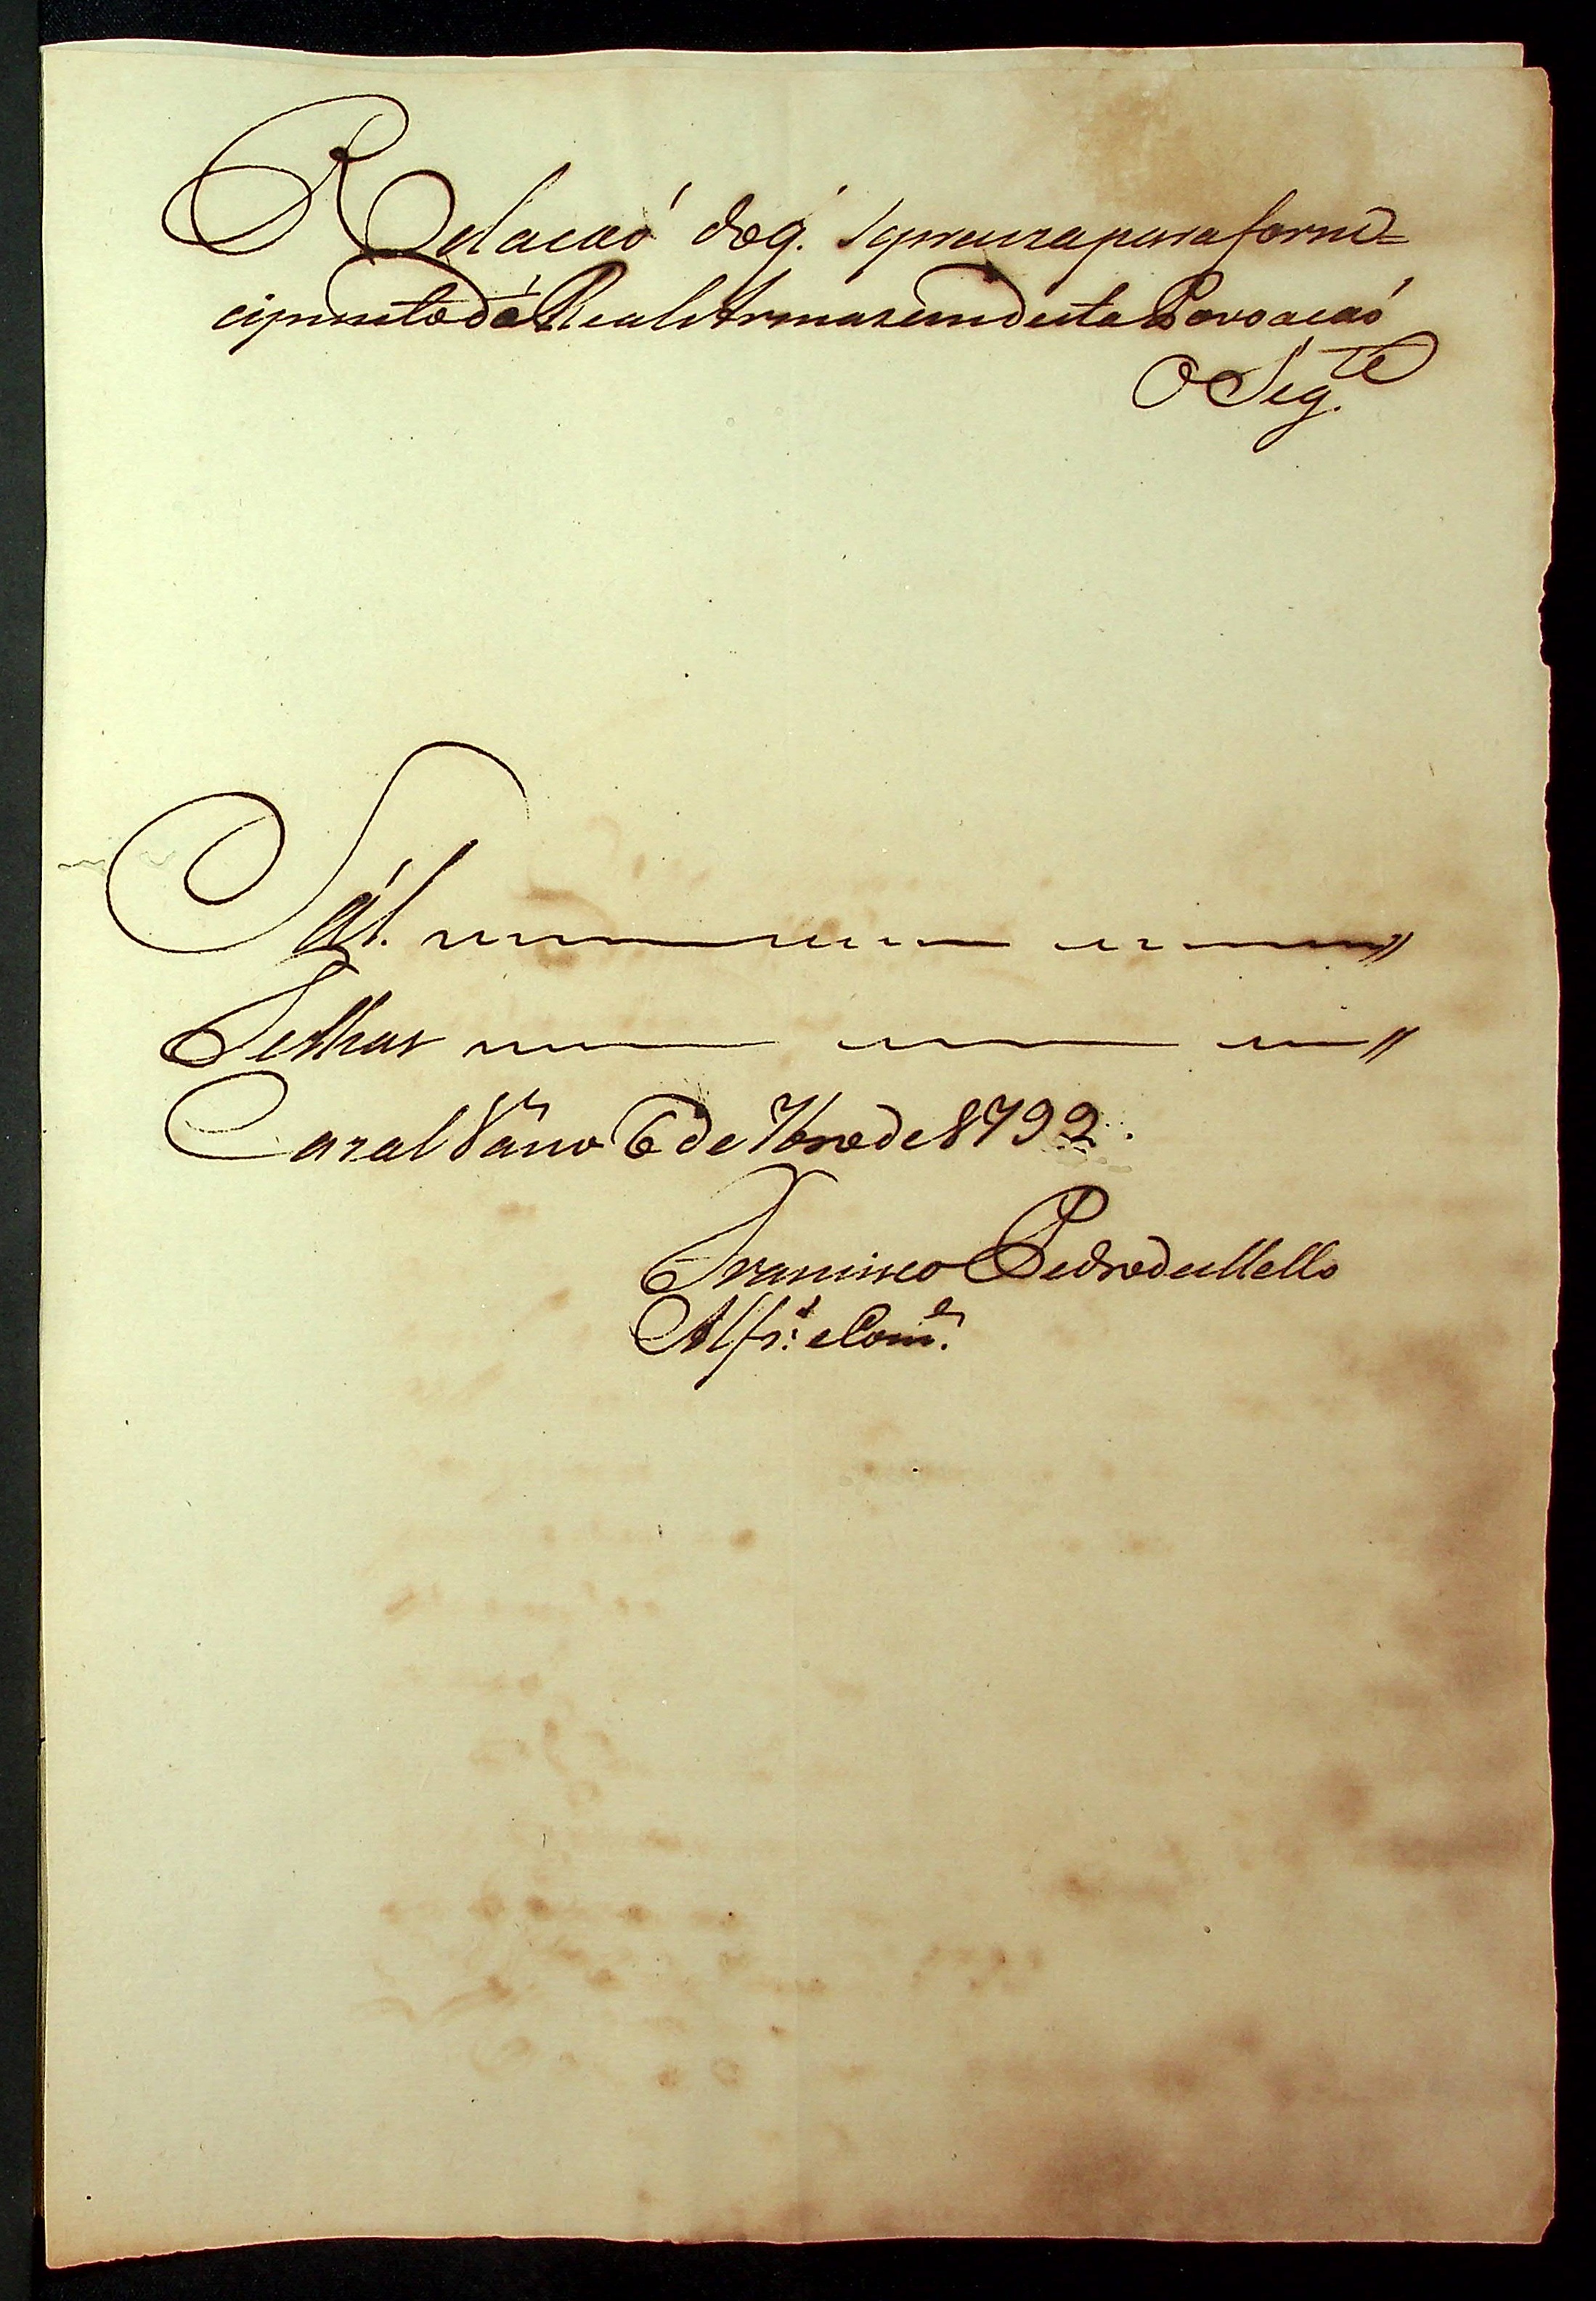 Relacaó doq.' sepreciza para forne=
cimento dá Real Armazem desta Povoacaó
O Seg.te
Sál.
Telhas
Cazal Váscо 6 de 7bro de 1792.
Francisco Pedro de Mello
Alfs.' e Com.e